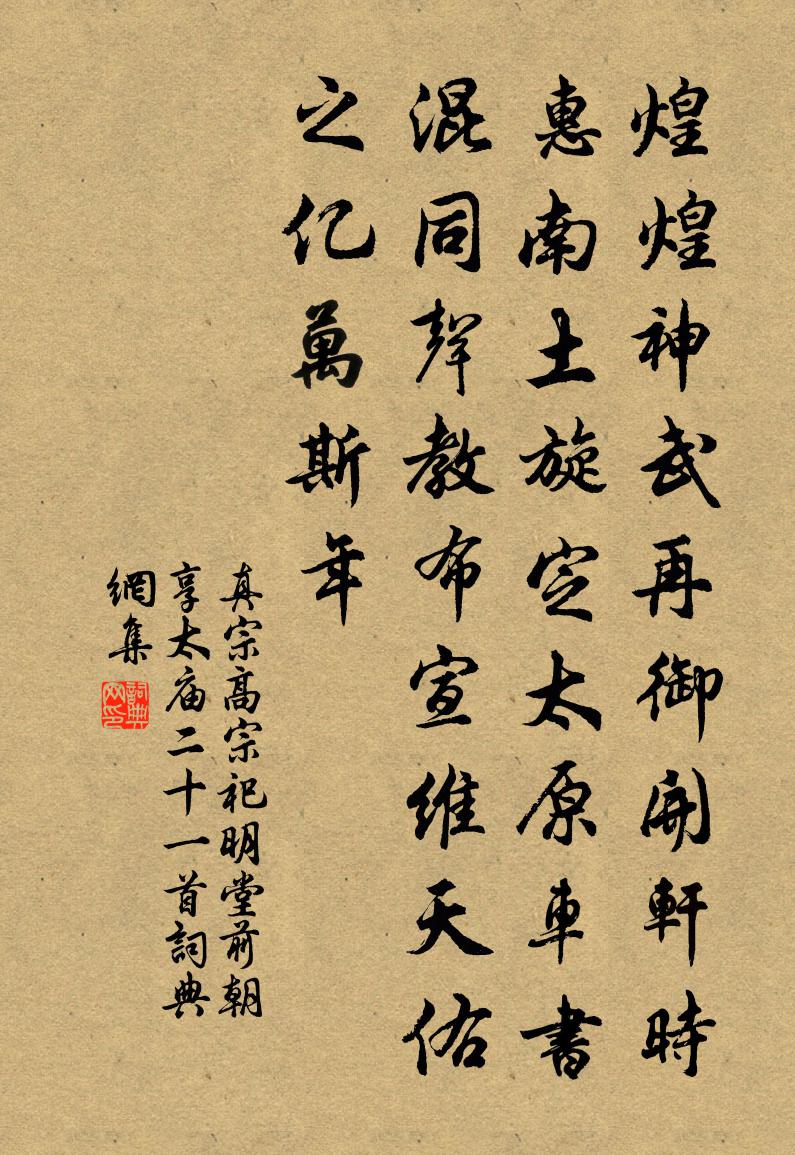 煌煌神武再御開軒時
惠南土旋定太原車書
混同聲教布宣維天佑
之億萬斯年
真宗高宗祀明堂前朝
享太庙二十一首詞典
網集
詞典
网印